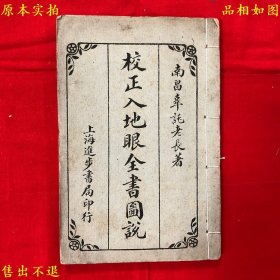 原本实拍
品相如图
南昌辜託老長著
校正入地眼全書圖說
上海進步書局印行
售出不退
孤本旧书